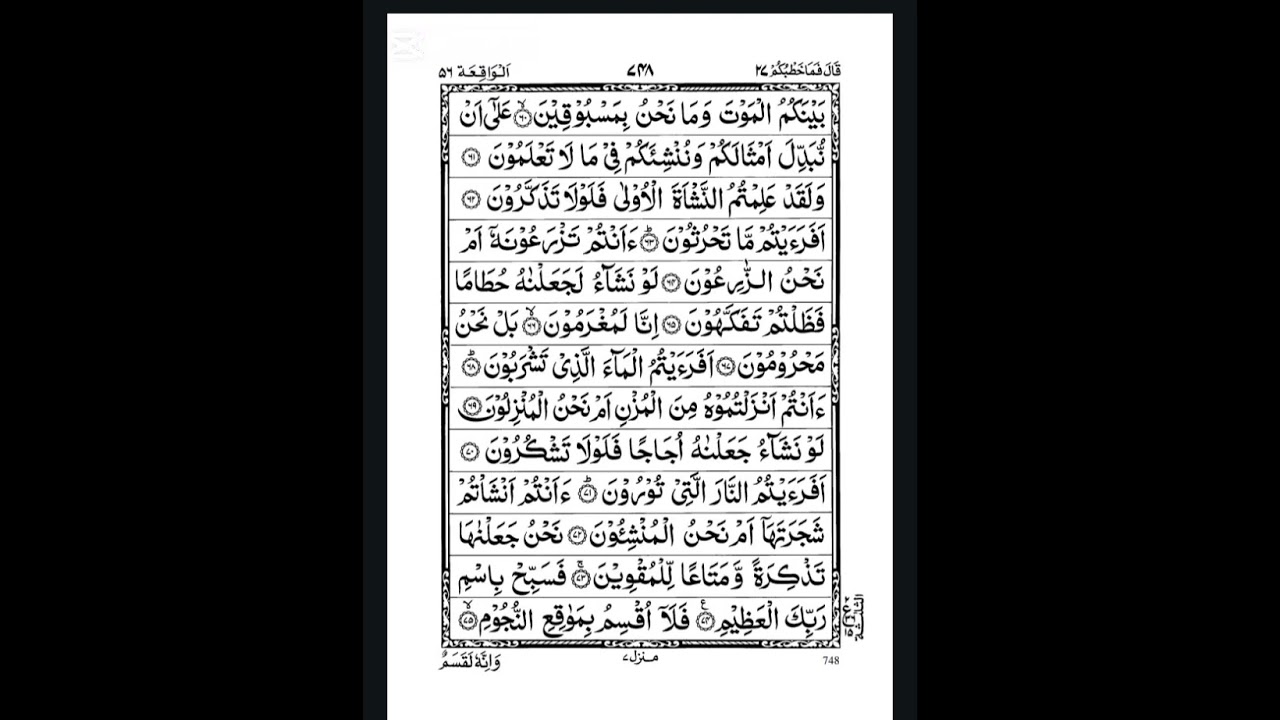 قَالَ فَمَا خَطْبُكُمْ ٢٧ ٧٤٨ اَلْوَاقِعَة ٥٦
بَيْنَكُمُ الْمَوْتَ وَمَا نَحْنُ بِمَسْبُوْقِيْنَ ۙ﴿٦٠﴾ عَلٰٓى اَنْ
نُّبَدِّلَ اَمْثَالَكُمْ وَنُنْشِئَكُمْ فِيْ مَا لَا تَعْلَمُوْنَ ﴿٦١﴾
وَلَقَدْ عَلِمْتُمُ النَّشْاَةَ الْاُوْلٰى فَلَوْلَا تَذَكَّرُوْنَ ﴿٦٢﴾
اَفَرَءَيْتُمْ مَّا تَحْرُثُوْنَ ؕ﴿٦٣﴾ ءَاَنْتُمْ تَزْرَعُوْنَهٗٓ اَمْ
نَحْنُ الزّٰرِعُوْنَ ﴿٦٤﴾ لَوْ نَشَآءُ لَجَعَلْنٰهُ حُطَامًا
فَظَلْتُمْ تَفَكَّهُوْنَ ﴿٦٥﴾ اِنَّا لَمُغْرَمُوْنَ ۙ﴿٦٦﴾ بَلْ نَحْنُ
مَحْرُوْمُوْنَ ﴿٦٧﴾ اَفَرَءَيْتُمُ الْمَآءَ الَّذِيْ تَشْرَبُوْنَ ؕ﴿٦٨﴾
ءَاَنْتُمْ اَنْزَلْتُمُوْهُ مِنَ الْمُزْنِ اَمْ نَحْنُ الْمُنْزِلُوْنَ ﴿٦٩﴾
لَوْ نَشَآءُ جَعَلْنٰهُ اُجَاجًا فَلَوْلَا تَشْكُرُوْنَ ﴿٧٠﴾
اَفَرَءَيْتُمُ النَّارَ الَّتِيْ تُوْرُوْنَ ؕ﴿٧١﴾ ءَاَنْتُمْ اَنْشَاْتُمْ
شَجَرَتَهَآ اَمْ نَحْنُ الْمُنْشِئُوْنَ ﴿٧٢﴾ نَحْنُ جَعَلْنٰهَا
تَذْكِرَةً وَّمَتَاعًا لِّلْمُقْوِيْنَ ۚ﴿٧٣﴾ فَسَبِّحْ بِاسْمِ
رَبِّكَ الْعَظِيْمِ ؑ﴿٧٤﴾ فَلَآ اُقْسِمُ بِمَوٰقِعِ النُّجُوْمِ ۙ﴿٧٥﴾
748 منزل ٧ وَاِنَّهٗ لَقَسَمٌ